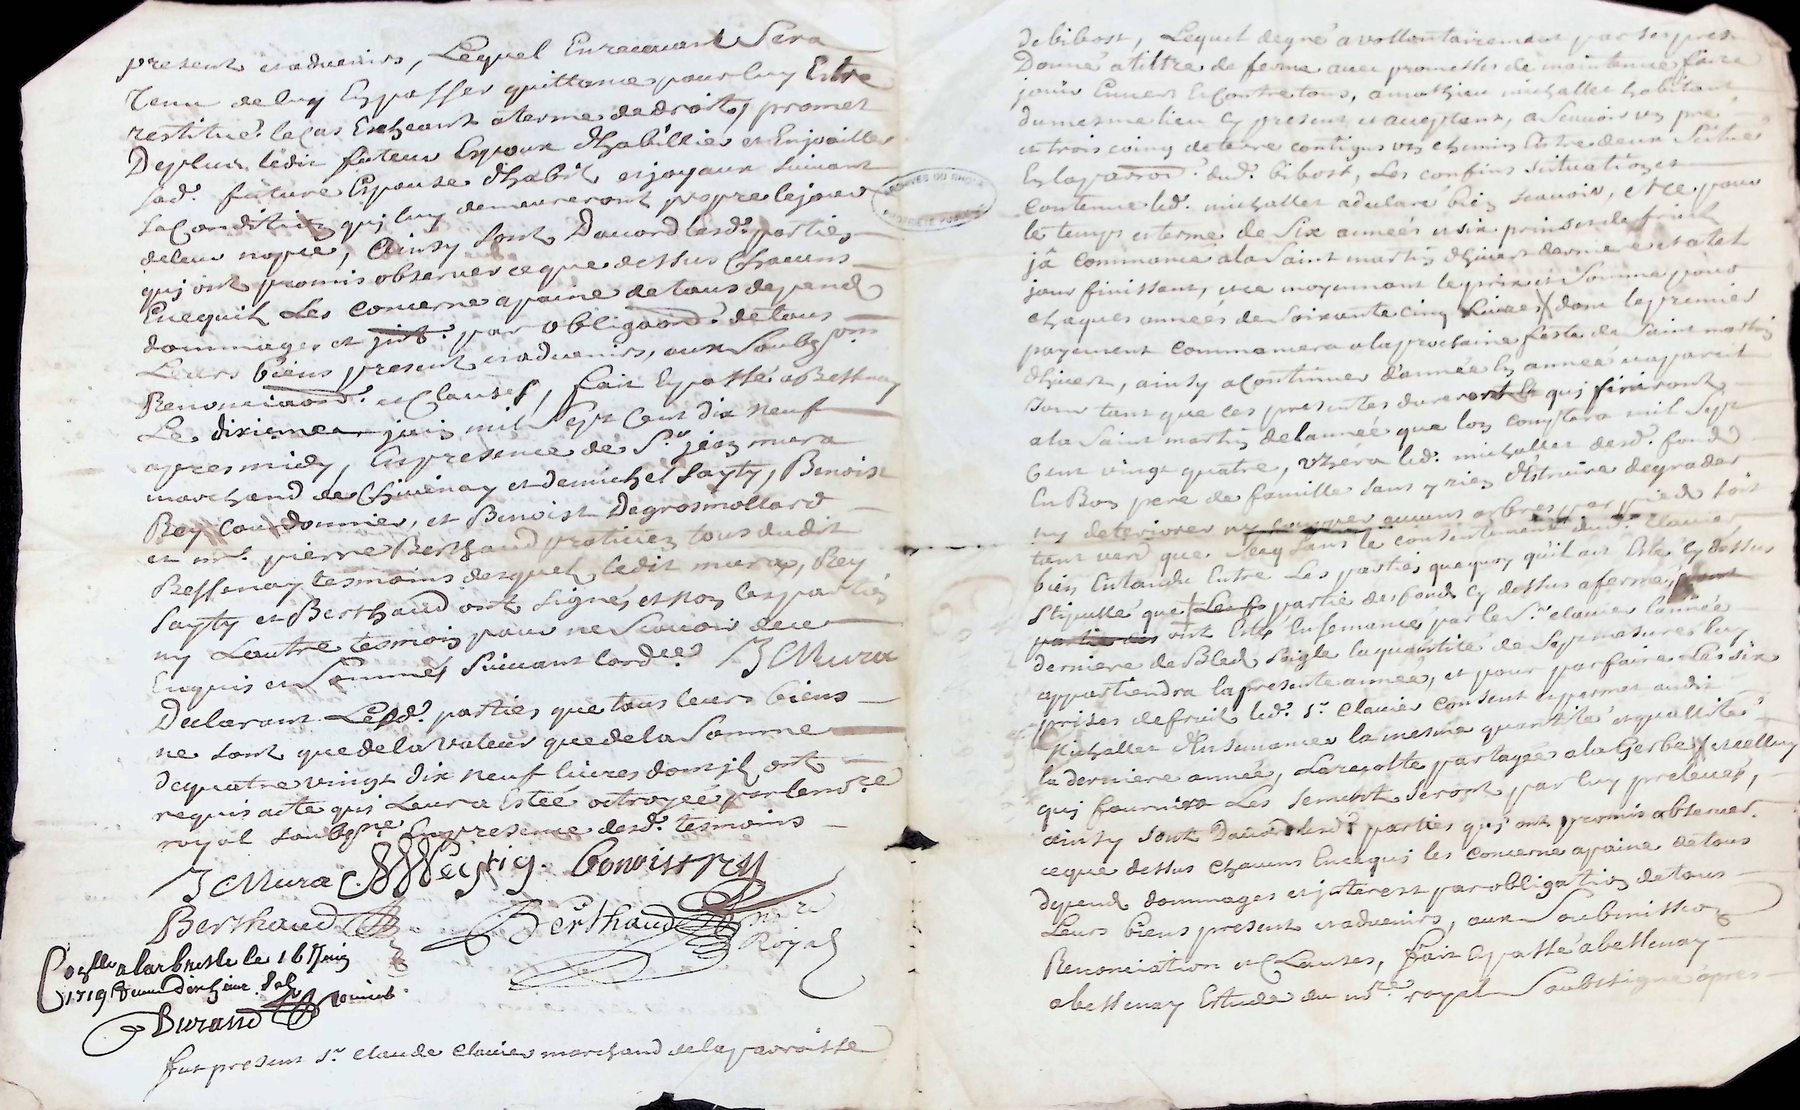 present et advenirs, Lequel En recevant Sera
Tenu de luy En passer quittance pour luy Estre
restitué le Cas Escheant a terme de droit, promet
De plus ledit futeur Espoux d'habillier et Enjoailler
sad. future Espouse d'habit et joyaux suivant
sa Condition quj luy demeureront propre le jour
de leur nopce, Ainsy sont D'accord lesd. parties
quj ont promis observer ce que dessus Chacuns
En ce quil Les Concerne a paine de tous depend
dommages et jnt. par obligaon. de tous
Leurs biens present et advenirs, aux Soubgons
Renonciaons. et Clauses, fait Et passé a Bessenay
Le dixieme juin mil Sept Cent dix neuf
apres midy, En presence de Sr. jean mura
marchand de Chivenay et de michel sayty, Benoist
Rey Courdonnier, et Benoist Degrosmollard
et mr. pierre Berthaud praticien tous dudit
Bessenay tesmoins desquels ledit mura, Rey
sayty et Berthaud ont signés et non les parties
ny L'autre tesmoin pour ne Scavoir de ce
Enquis et Sommés suivant l'ordce. J Mura
Declarant Lesd. parties que tous leurs biens
ne sont que de la valeur que de la Somme
de quatre vingt dix neuf livres dont jls ont
requis acte quj Leur a estéé octroyéé par le nore.
royal soubsgné En presence desd. tesmoins
J Mura Benoist Rey
Berthaud Berthaud nore
Royal
Conllé a larbresle le 16 Juin
1719
Durand
fut present Sr. Claude Clavier marchand de la parroisse
de bibost, Lequel de gré a vollontairement par ses pres
Donné a tiltre de ferme avec promesses de maintenue faire
jouir Envers Et Contre tous, a mathieu michallet habitant
du mesme lieu Cy present et acceptant, a Scavoir un pré
et trois coing de terre contigus un chemin Entre deux Situé
En la parroi. dud. bibost, Les confins situation et
Contenue led. michallet a declaré bien scavoir, et ce pour
le temps et terme de Six années et six prinses de fruit
jâ commancé a la Saint martin d'hivert derniere et a tel
jour finissant, et ce moyennant le prix et Somme pour
chaques années de Soixante cinq Livres dont le premier
payement Commancera a la prochaine feste de Saint martin
d'hivert, ainsy a Continuer d'année En année a pareil
Jour tant que ces presentes dureront quj finiront
a la Saint martin de l'année que lon comptera mil Sept
Cent vingt quatre, Usera led. michallet desd. fonds
En Bon pere de famille sans y rien d'Estruire degrader
ny deteriorer ny couper aucuns arbres par pied soit
tant verd que Secq sans le consentement dud. Clavier
bien Entandu Entre Les parties que quoy qu'il ait Esté cy dessus
Stipullé que partie des fonds cy dessus affermé
ont Esté Ensemancé par le Sr. Clavier l'année
derniere de Bled Seigle la quantité de Sept mesures luy
appartiendra la presente année, et pour parfaire Les six
prises de fruit led. Sr. Clavier Consent et permet audit
Michallet d'Ensemancer la mesme quantité et quallité
la derniere année, La recolte partagée a la Gerbe et celluy
quj fournira Les semens seront par luy prelevés,
ainsy sont D'accord lesd. parties quj ont promis observer
ce que dessus chacuns En ce quj les concerne a paine de tous
depend dommages et jnterest par obligation de tous
Leurs biens present et advenirs, aux Soubmission
Renonciation et Clauses, fait Et passé a bessenay
a bessenay Estude du nore. royal Soubsigné apres